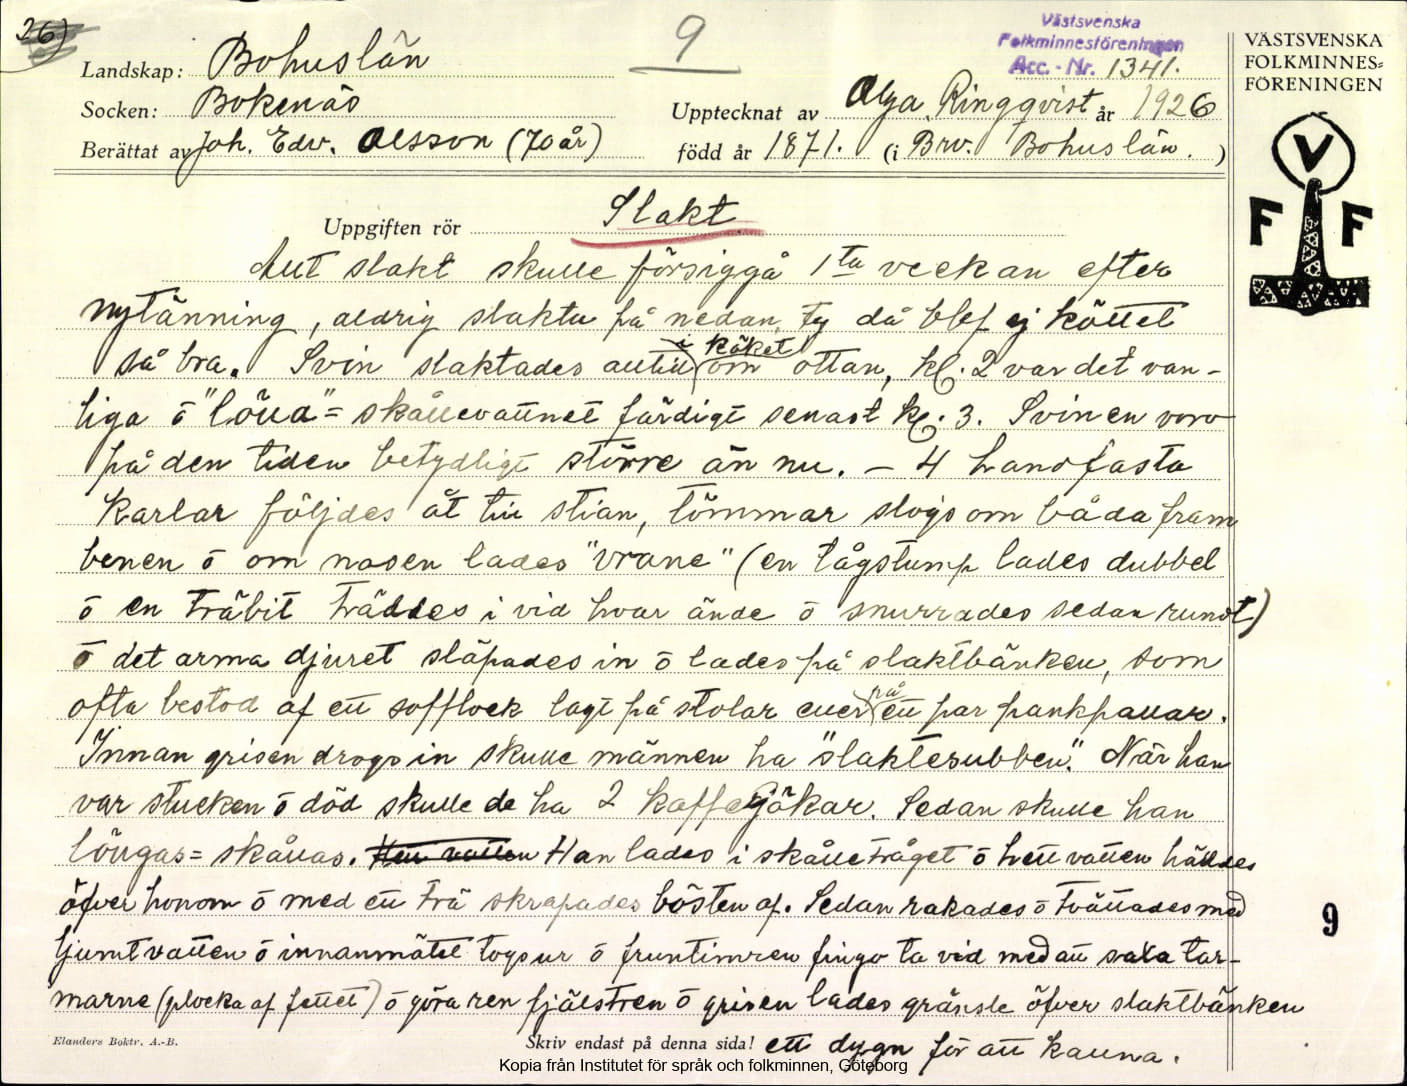 26)
9
Västsvenska
Folkminnesföreningen
Acc. - Nr. 1341.
VÄSTSVENSKA
FOLKMINNES=
FÖRENINGEN
V
F F
Landskap: Bohuslän
Socken: Bokenäs
Upptecknat av Olga Ringqvist år 1926
Berättat av Joh. Edw. Olsson (70 år)
född år 1871. (i Bro. Bohuslän.)
Uppgiften rör Slakt
All slakt skulle försiggå 1ta veckan efter
nytänning, aldrig slakta på nedan, ty då blef ej köttet
så bra. Svin slaktades alltid i köket om ottan, kl. 2 var det van-
liga o "löua" = skållevattnet färdigt senast kl. 3. Svinen voro
på den tiden betydligt större än nu. – 4 handfasta
karlar följdes åt till stian, tömmar slogs om båda fram
benen o om nosen lades "vrane" (en tågstump lades dubbel
o en träbit träddes i vid hvar ände o snurrades sedan rundt)
o det arma djuret släpades in o lades på slaktbänken, som
ofta bestod af ett sofflock lagt på stolar eller på ett par pankpallar.
Innan grisen drogs in skulle männen ha "slaktesubben". När han
var stucken o död skulle de ha 2 kaffegökar. Sedan skulle han
löugas = skållas. Han lades i skålletråget o hett vatten hälldes
öfver honom o med ett trä skrapades bösten af. Sedan rakades o tvättades med
ljumt vatten o innanmätet togs ur o fruntimren fingo ta vid med att raka tar-
marne (plocka af fettet) o göra ren fjälstren o grisen lades gränsle öfver slaktbänken
ett dygn för att kallna.
9
Elanders Boktr. A.-B.
Skriv endast på denna sida!
Kopia från Institutet för språk och folkminnen, Göteborg